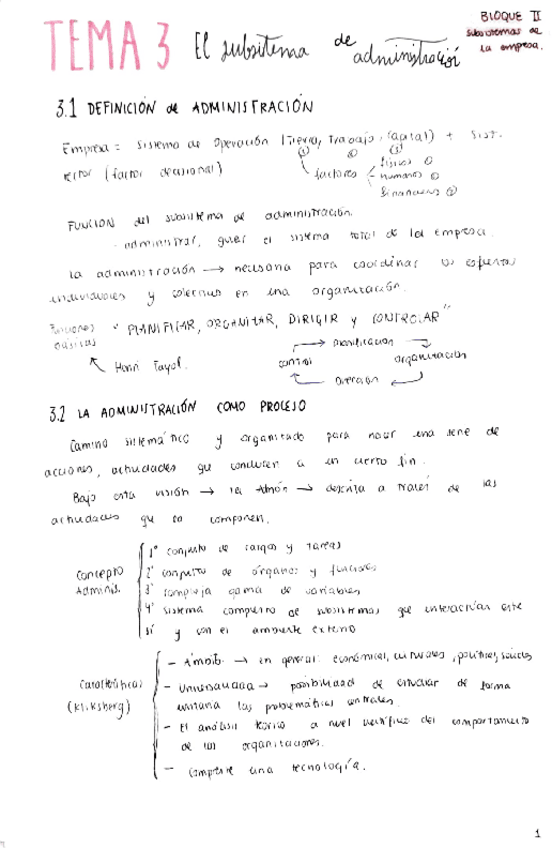 BLOQUE II
subsistemas de
la empresa.
TEMA 3 El subsistema de administración
3.1 DEFINICIÓN de ADMINISTRACIÓN
Empresa = Sistema de operación (Tierra, Trabajo, Capital) + Sist.
① ② ③
rector (factor decisional)
factores
físicos ①
humanos ②
financieros ③
FUNCIÓN del subsistema de administración.
administrar, guiar el sistema total de la empresa.
la administración → necesaria para coordinar los esfuerzos
individuales y colectivos en una organización.
Funciones básicas "PLANIFICAR, ORGANIZAR, DIRIGIR y CONTROLAR"
Henri Fayol.
planificación
control organización
dirección
3.2 LA ADMINISTRACIÓN COMO PROCESO
Camino sistemático y organizado para hacer una serie de
acciones, actividades que conducen a un cierto fin.
Bajo esta visión → la Admón → descrita a través de las
actividades que la componen.
Concepto Adminis.
1º conjunto de cargos y tareas
2º conjunto de órganos y funciones
3º compleja gama de variables
4º sistema compuesto de subsistemas que interactúan entre
sí y con el ambiente externo
Características (Kliksberg)
- Ámbito → en general: económicas, culturales, políticas, sociales
- Universalidad → posibilidad de estudiar de forma
unitaria las problemáticas centrales.
- El análisis teórico a nivel científico del comportamiento
de las organizaciones.
- Comprende una tecnología.
1